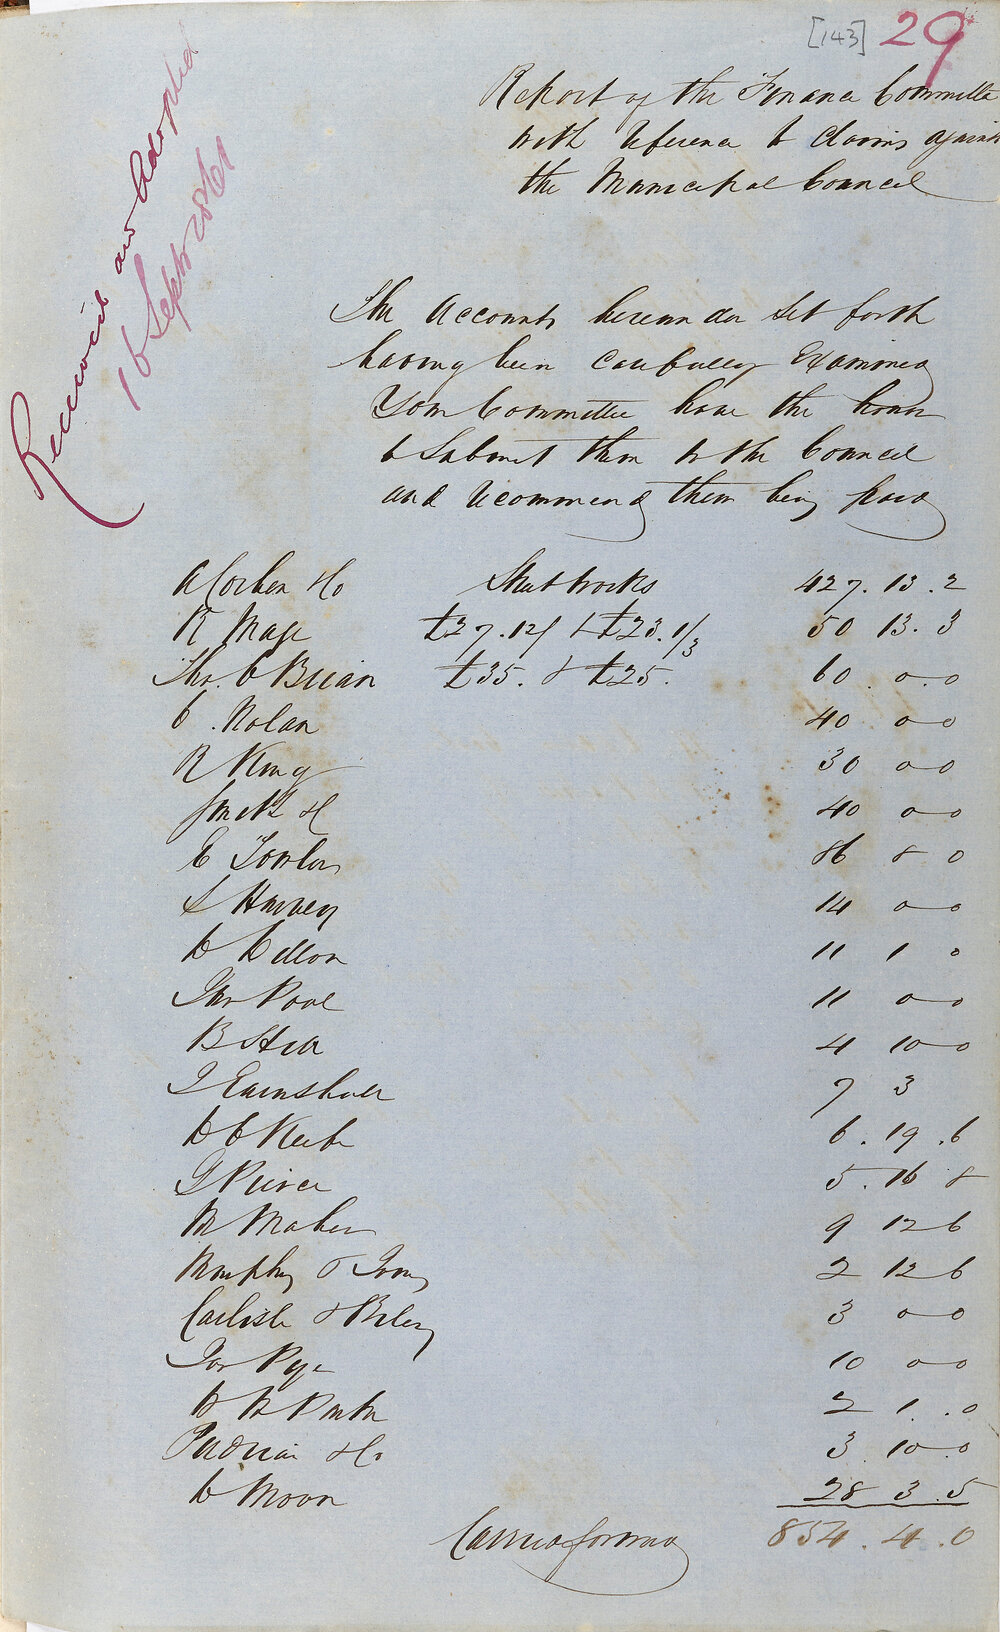 [143] 29
Report of the Finance Committee
with reference to Claims against
the Municipal Council
Received and Adopted
16 Septr 1861
The Accounts hereunder set forth
having been carefully Examined
Your Committee have the honor
to Submit them to the Council
and recommend them being paid
A Corben & Co Skut works 427. 13. 2
R Mage £27.12/ & £23.1/3 50 13. 3
Thos. O Brien £35. & £25. 60. 0. 0
C. Nolan 40 0 0
R King 30 0 0
Smith & Co 40 0 0
E Fowler 86 8 0
S Harvey 14 0 0
D Dillon 11 1 0
Thos Poole 11 0 0
B Starr 4 10 0
J Earnshaw 7 3
D C Keefe 6. 19. 6
G Pierce 5. 16 8
M Maher 9 12 6
Murphy & 2 12 6
Carlisle & 3 0 0
Jas Pye 10 0 0
W W 2 1. 0
& Co 3 10 0
D Moon 28 3. 5
Carried forward 854. 4. 0